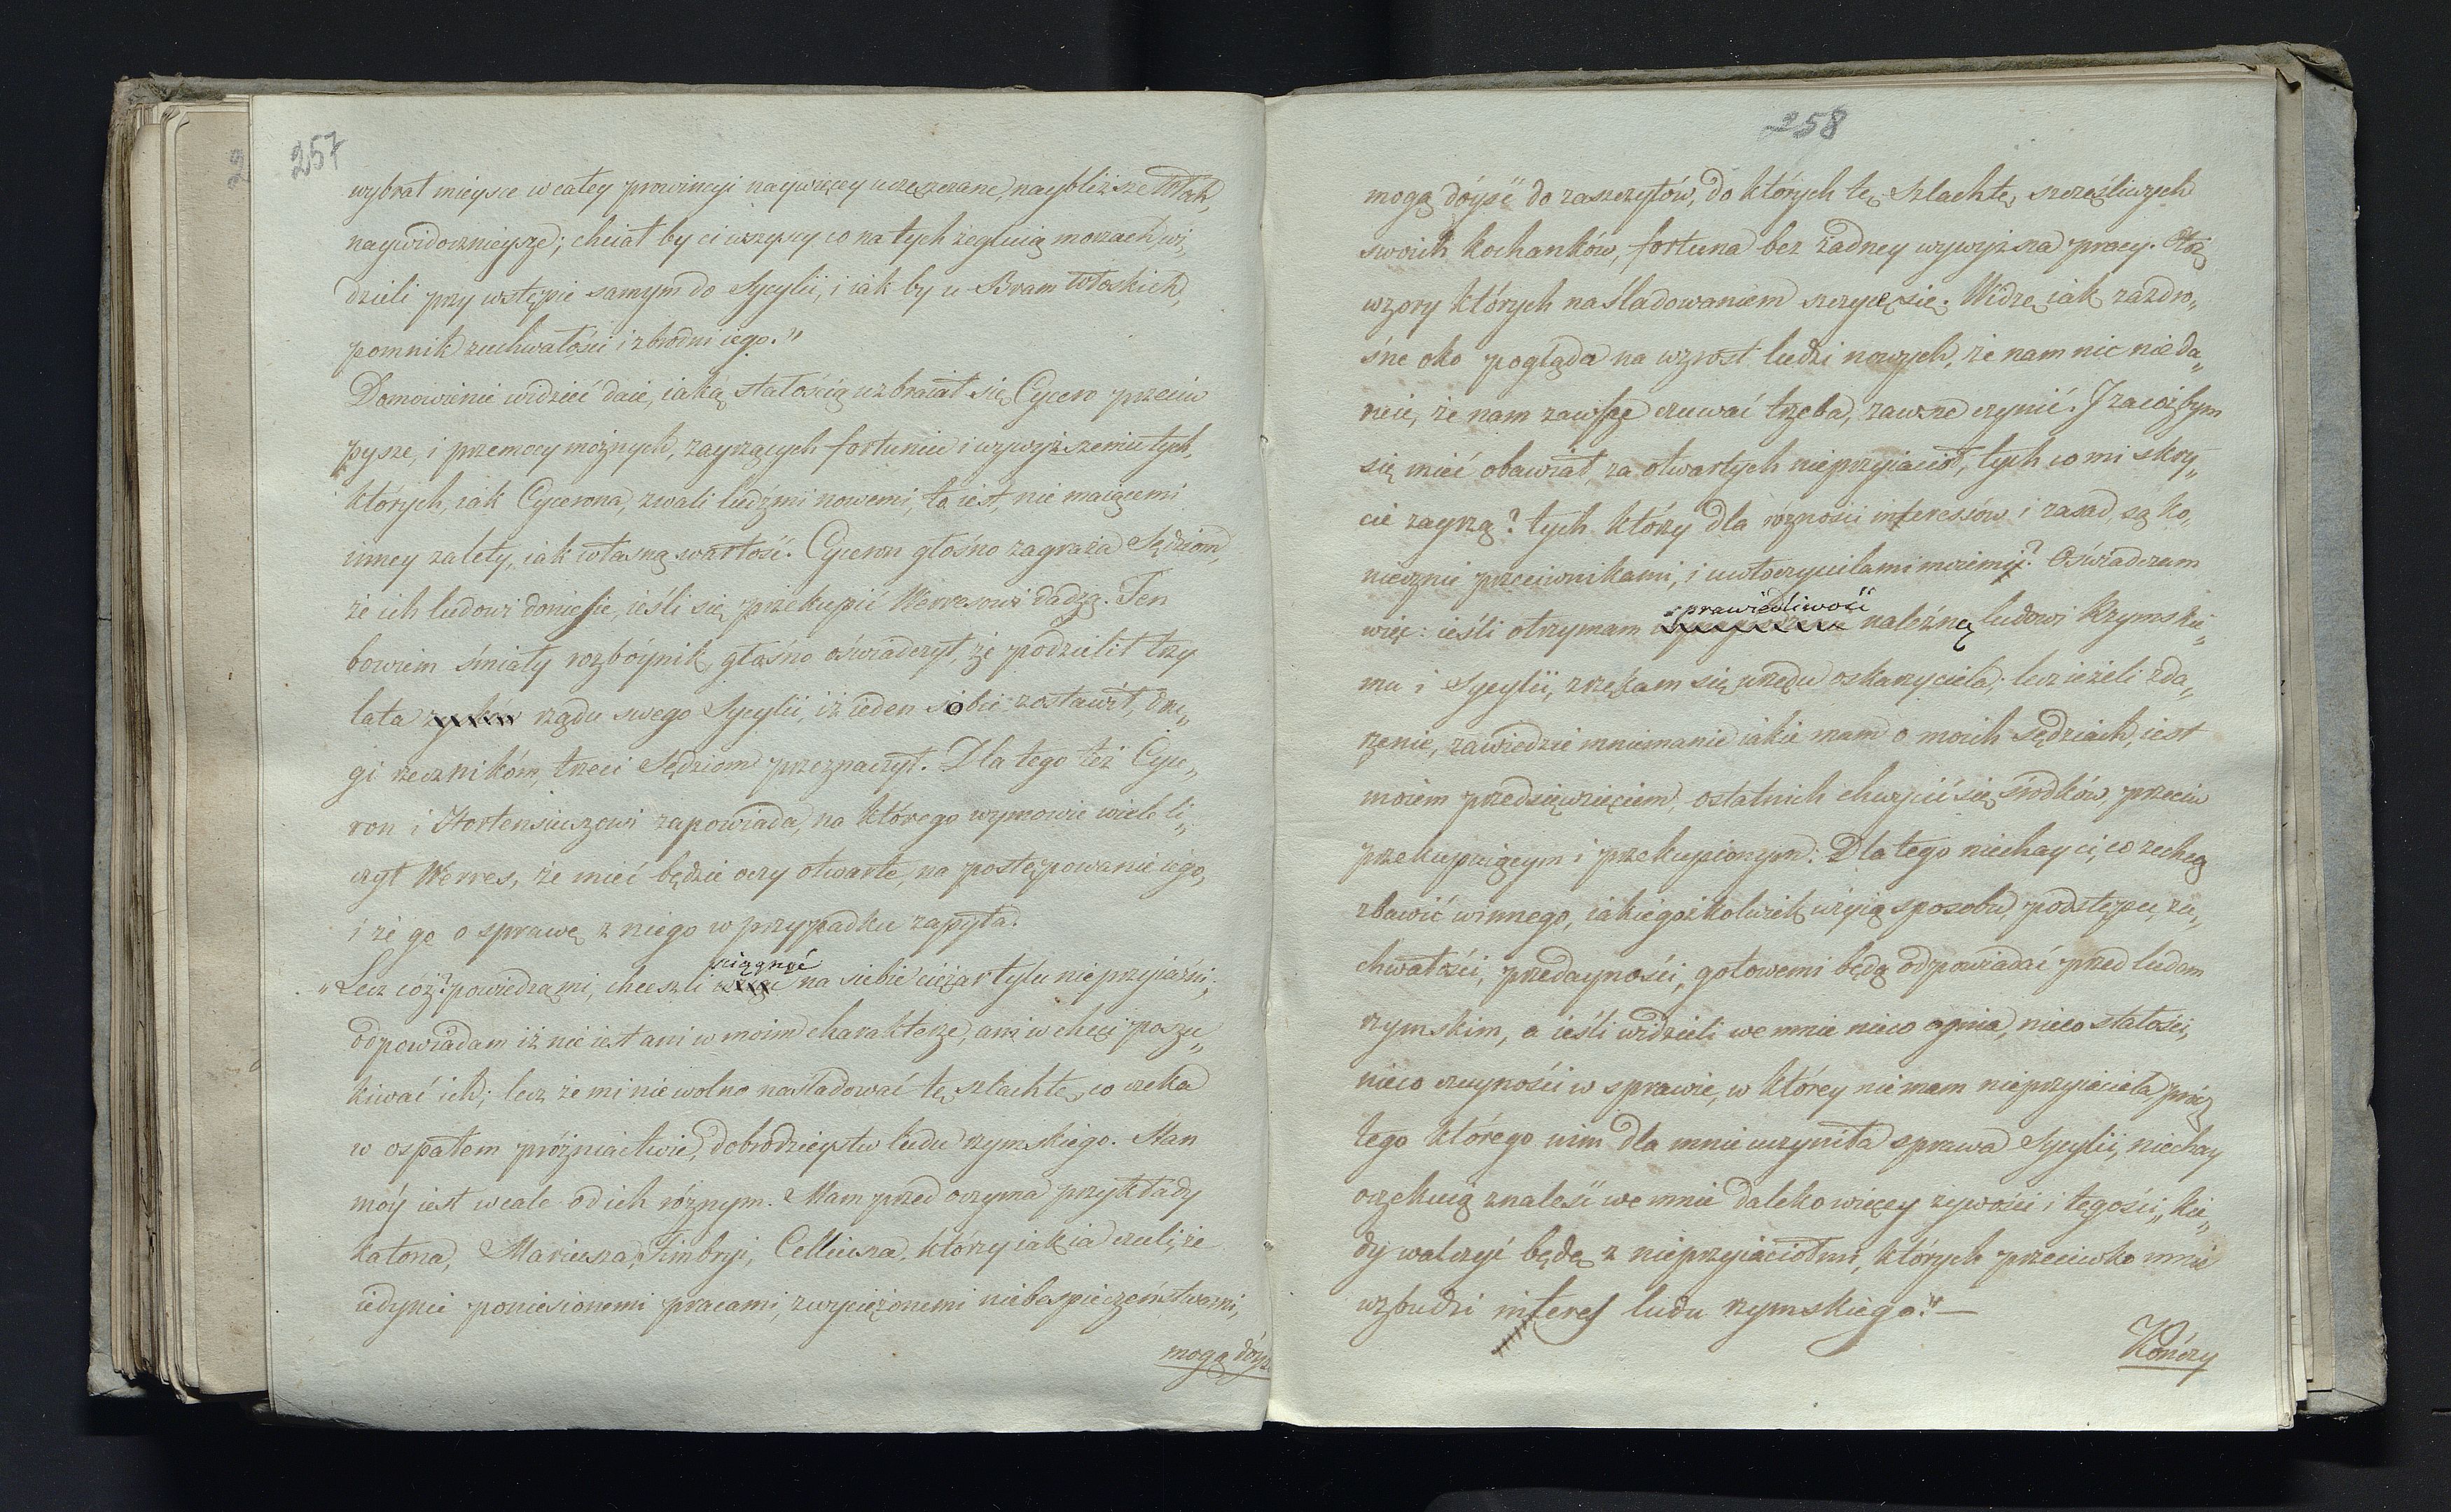 257
wybrał mieysce w całey prowincyi naywięcey uczęszczane, naybliższe Włoh,
naywidocznieysze; chciał by ci wszyscy co na tych żegluią morzach, wi„
dzieli przy wstępie samym do Sycylii, i iak by u Bram Włoskich,
pomnik zuchwałości i zbrodni iego."
Domowienie widzieć daie, iaką stałością uzbraiał się Cycero przeciw
pysze, i przemocy możnych, zayrzących fortunie i wywyższeniu tych,
których, iak Cycerona, zwali ludźmi nowemi, to iest, nie maiącemi
inney zalety, iak własną wartość. Cyceron głośno zagraża Sędziom,
że ich ludowi doniesie, ieśli się przekupić Werresowi dadzą. Ten
bowiem śmiały rozbóynik, głośno oświadczył, że podzielił trzy
lata rządu swego Sycylii, iż ieden sobie zostawił, dru„
gi rzecznikóm, trzeci Sędziom przeznaczył. Dla tego też Cyce„
ron i Hortensiuszowi zapowiada, na którego wymowie wiele li„
czył Werres, że mieć będzie oczy otwarte, na postępowanie iego,
i że go o sprawę z niego w przypadku zapyta.
„Lecz cóż? powiedzą mi, chceszli ściągnąć na siebie ciężar tylu nieprzyiaźni;
odpowiadam iż nie iest ani w moim charakterze, ani w chęci poszu„
kiwać ich; lecz że mi nie wolno naśladować tę szlachtę, co czeka
w ospałem próżniactwie, dobrodzieystw ludu rzymskiego. Stan
móy iest wcale od ich różnym. Mam przed oczyma przykłady
Katona, Mariusza, Fimbryi, Celliusza, którzy iak ia czuli, że
iedynie poniesionemi pracami, zwyciężonemi niebespieczeństwami,
mogą dóyś
258
mogą dóyść do zaszczytów, do których tę Szlachtę, szczęśliwych
swoich kochanków, fortuna bez żadney wywyższa pracy. Otóż
wzory których naśladowaniem szczycę się. Widzę iak zazdro„
śne oko pogląda na wzrost ludzi nowych, że nam nic nie da„
rzecie, że nam zawsze czuwać trzeba, zawsze czynić. I zacóżbym
się mieć obawiał za otwartych nieprzyiaciół, tych co mi skry„
cie zayrzą? tych którzy dla różności interessów i zasad, są ko„
niecznie przeciwnikami, i uwłoczycielami moiemi? Oświadczam
więc: ieśli otrzymam sprawiedliwość należną ludowi Rzymskie„
mu i Sycylii, zrzekam się urzędu oskarzyciela; lecz ieżeli zda„
rzenie, zawiedzie mniemanie iakie mam o moich Sędziach, iest
moiem przedsięwzięciem, ostatnich chwycić się środków, przeciw
przekupuiącym i przekupionym: Dla tego niechay ci, co zechcą
zbawić winnego, iakiegożkolwiek użyią sposobu, podstępu, zu„
chwałości, przedayności, gotowemi będą odpowiadać przed ludem
rzymskim, a ieśli widzieli we mnie nieco ognia, nieco stałości,
nieco czuyności w sprawie, w którey nie mam nieprzyiaciela, prócz
tego którego nim dla mnie uczyniła sprawa Sycylii, niechay
oczekuią znaleść we mnie daleko więcey żywości i tęgości, kie„
dy walczyć będę z nieprzyiaciołmi, których przeciwko mnie
wzbudzi interes ludu rzymskiego." —
Kończy